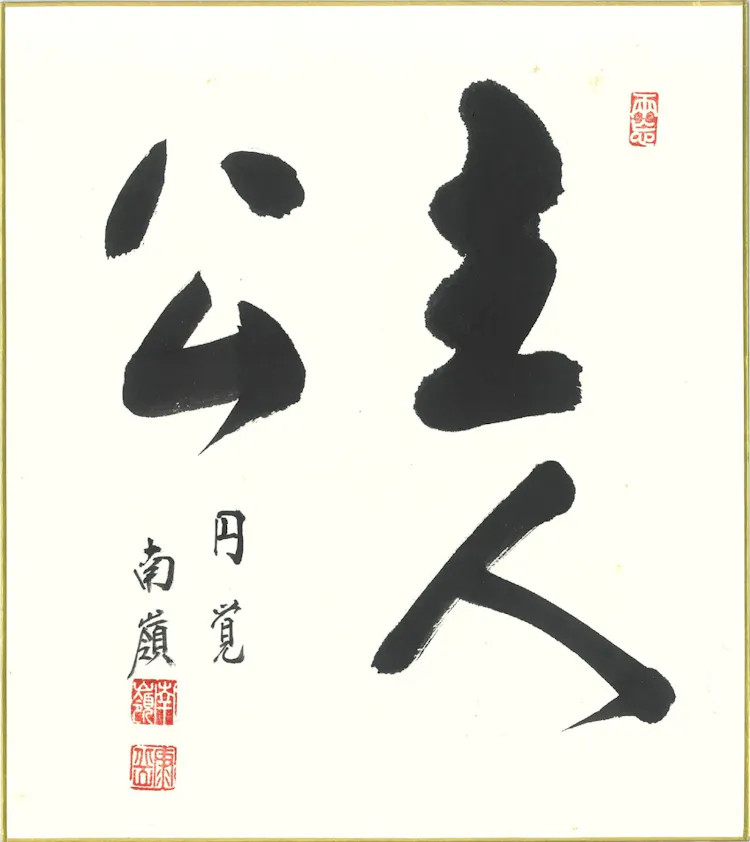 主人
公
円覚
南嶺